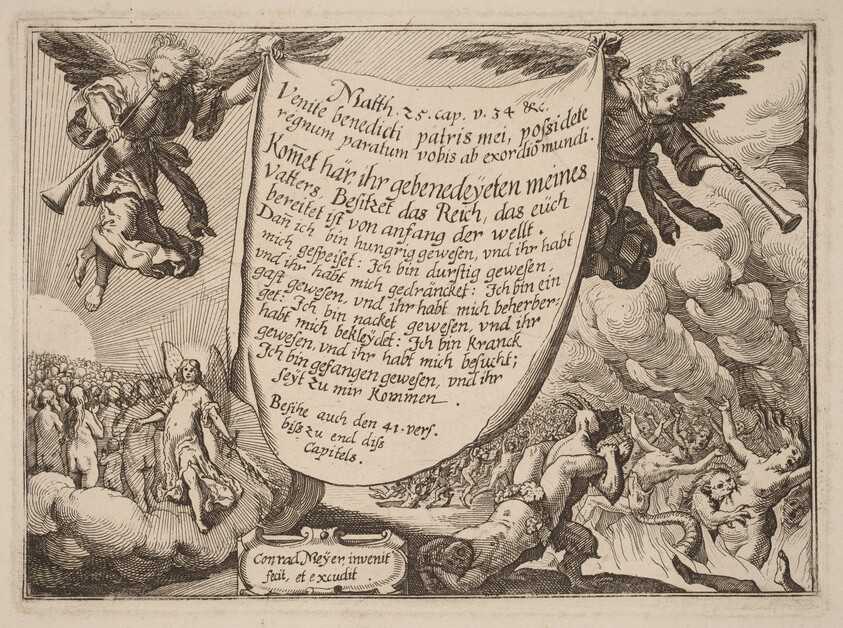 Matth. 25. cap. v. 34 &c.
Venite benedicti patris mei, possidete
regnum paratum vobis ab exordiō mundi.
Kom̄et här ihr gebenedeÿeten meines
Vatters, Besitzet das Reich, das euch
bereitet ist von anfang der wellt.
Dan̄ ich bin hungrig gewesen, vnd ihr habt
mich gespeiset: Ich bin durstig gewesen,
vnd ihr habt mich gedräncket: Ich bin ein
gast gewesen, vnd ihr habt mich beherber:
get: Ich bin nacket gewesen, vnd ihr
habt mich bekleÿdet: Ich bin kranck
gewesen, vnd ihr habt mich besucht;
Ich bin gefangen gewesen, vnd ihr
seÿt zu mir kommen.
Besihe auch den 41. vers.
biſz zu end diſz
Capitels.
Conrad Meÿer, invenit
fecit, et excudit.